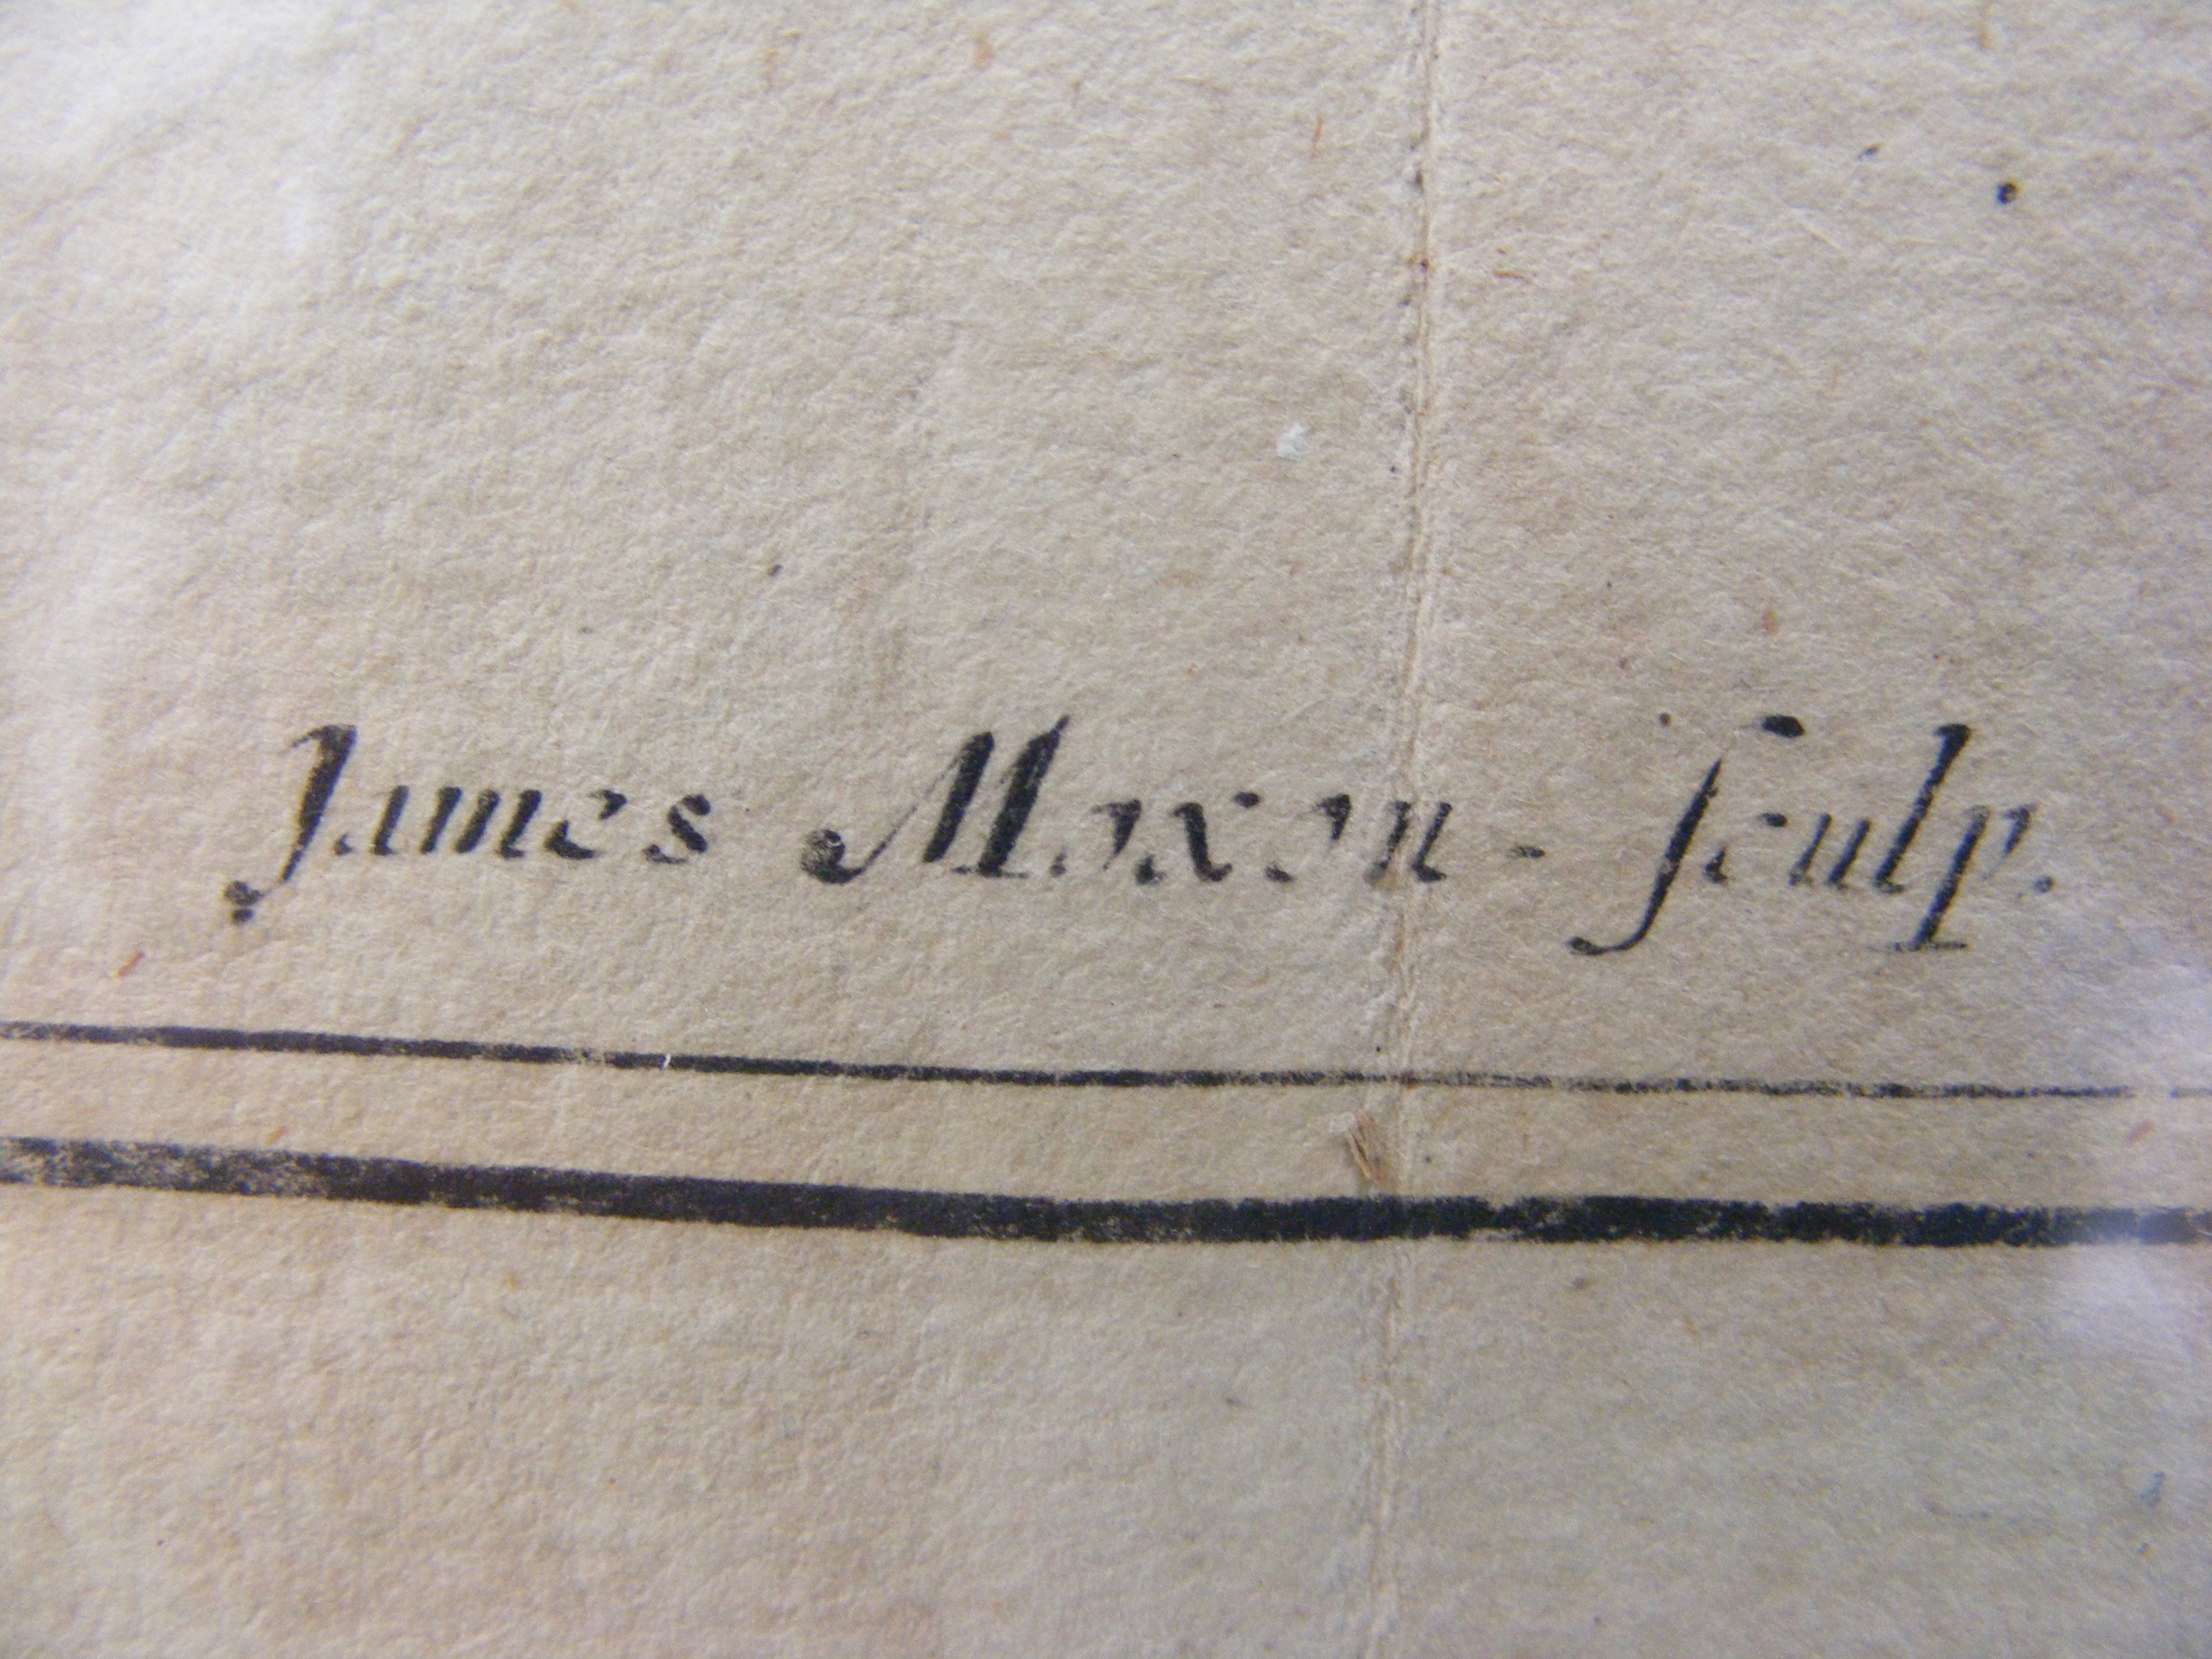 James Moxon - ſculp.